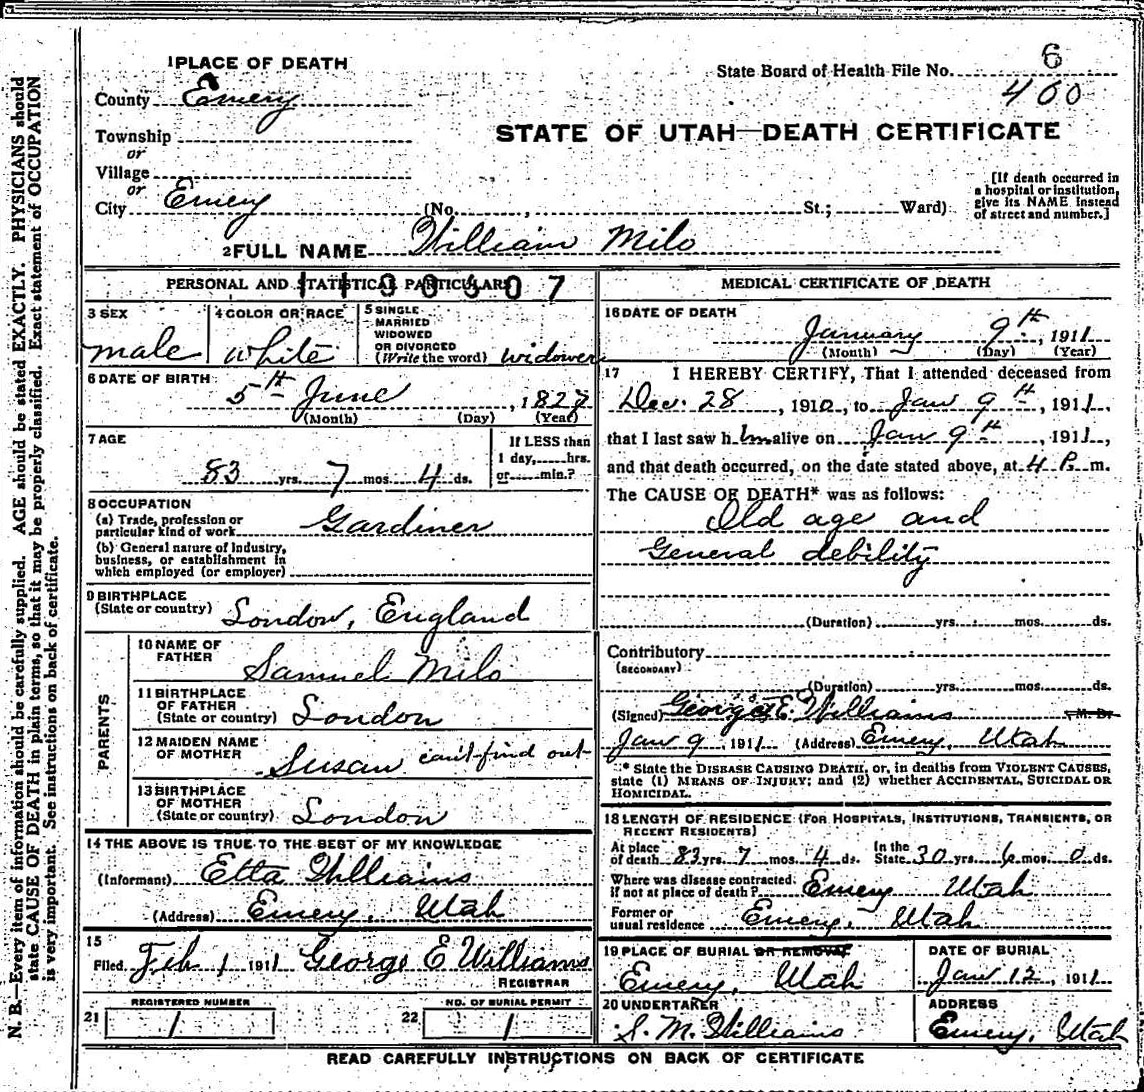 1 PLACE OF DEATH
County Emery
Township
or
Village
or
City Emery (No. , St.; Ward)
State Board of Health File No. 6
400
STATE OF UTAH—DEATH CERTIFICATE
[If death occurred in
a hospital or institution,
give its NAME instead
of street and number.]
2 FULL NAME William Milo
PERSONAL AND STATISTICAL PARTICULARS
3 SEX
male
4 COLOR OR RACE
white
5 SINGLE
MARRIED
WIDOWED
OR DIVORCED
(Write the word) widower
6 DATE OF BIRTH
5th June , 1827
(Month) (Day) (Year)
7 AGE
83 yrs. 7 mos. 4 ds.
If LESS than
1 day, hrs.
or min.?
8 OCCUPATION
(a) Trade, profession or
particular kind of work Gardiner
(b) General nature of industry,
business, or establishment in
which employed (or employer)
9 BIRTHPLACE
(State or country) London, England
PARENTS
10 NAME OF
FATHER Samuel Milo
11 BIRTHPLACE
OF FATHER
(State or country) London
12 MAIDEN NAME
OF MOTHER Susan can't find out
13 BIRTHPLACE
OF MOTHER
(State or country) London
14 THE ABOVE IS TRUE TO THE BEST OF MY KNOWLEDGE
(Informant) Etta Williams
(Address) Emery, Utah
15
Filed Feb 1 1911 George E Williams
REGISTRAR
REGISTERED NUMBER
21 1
NO. OF BURIAL PERMIT
22 1
MEDICAL CERTIFICATE OF DEATH
16 DATE OF DEATH
January 9th , 1911
(Month) (Day) (Year)
17 I HEREBY CERTIFY, That I attended deceased from
Dec. 28 , 1910, to Jan 9th , 1911,
that I last saw him alive on Jan 9th , 1911,
and that death occurred, on the date stated above, at 4 P. m.
The CAUSE OF DEATH* was as follows:
Old age and
General debility
(Duration) yrs. mos. ds.
Contributory
(SECONDARY)
(Duration) yrs. mos. ds.
(Signed) George E. Williams M. D.
Jan 9, 1911 (Address) Emery, Utah
* State the DISEASE CAUSING DEATH, or, in deaths from VIOLENT CAUSES,
state (1) MEANS OF INJURY; and (2) whether ACCIDENTAL, SUICIDAL OR
HOMICIDAL.
18 LENGTH OF RESIDENCE (FOR HOSPITALS, INSTITUTIONS, TRANSIENTS, OR
RECENT RESIDENTS)
At place
of death 83 yrs. 7 mos. 4 ds. In the
State 30 yrs. 6 mos. 0 ds.
Where was disease contracted
if not at place of death? Emery Utah
Former or
usual residence Emery, Utah
19 PLACE OF BURIAL OR REMOVAL
Emery, Utah
DATE OF BURIAL
Jan 12, 1911
20 UNDERTAKER
S. M. Williams
ADDRESS
Emery, Utah
READ CAREFULLY INSTRUCTIONS ON BACK OF CERTIFICATE
N. B.—Every item of information should be carefully supplied. AGE should be stated EXACTLY. PHYSICIANS should
state CAUSE OF DEATH in plain terms, so that it may be properly classified. Exact statement of OCCUPATION
is very important. See instructions on back of certificate.